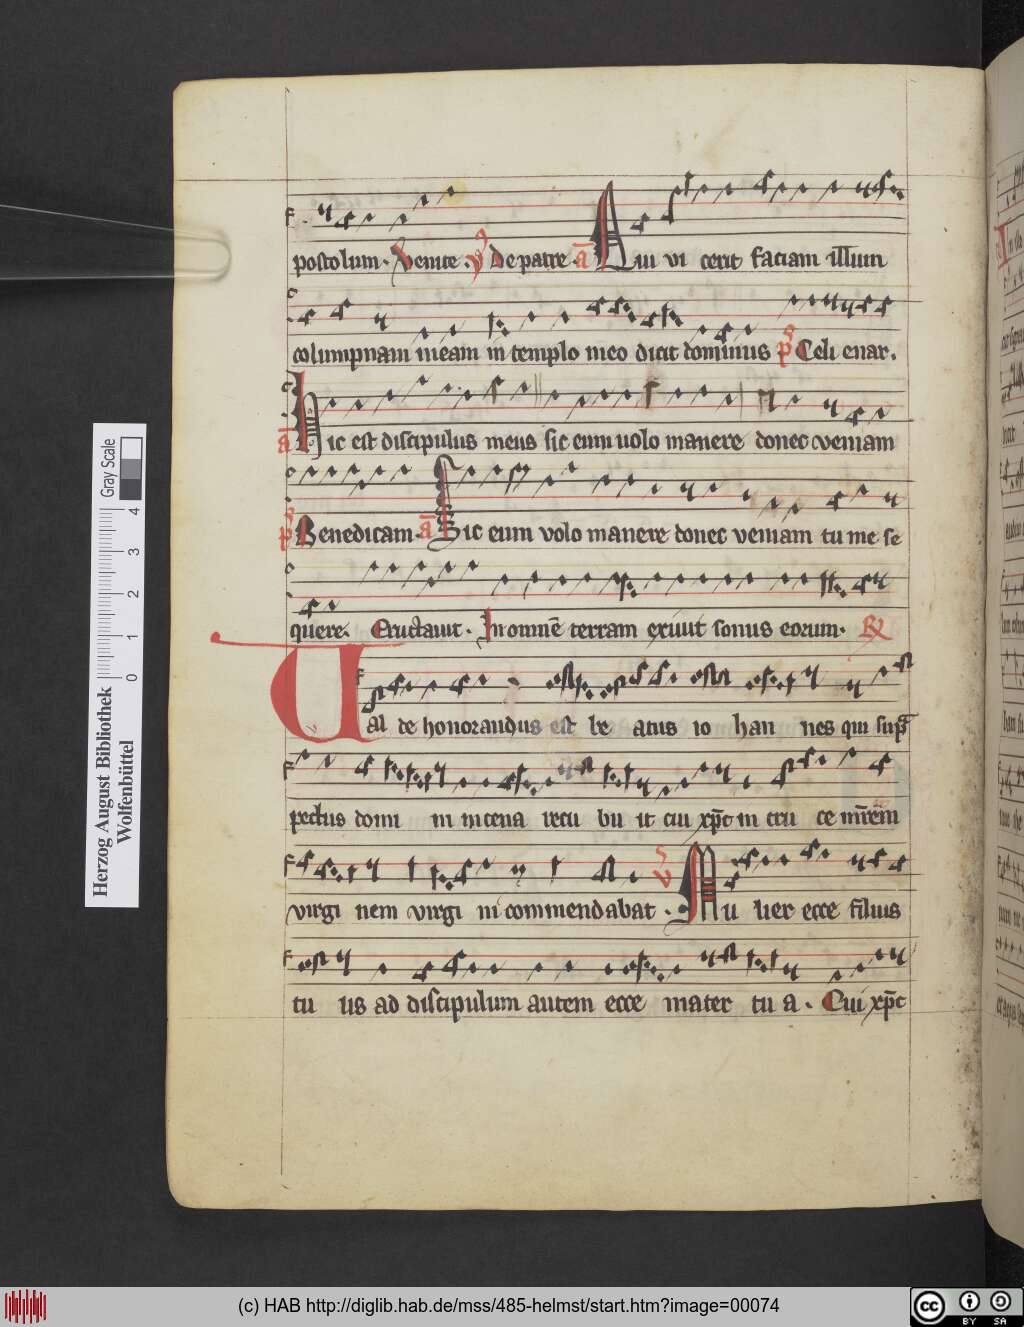 postolum. Venite. V De patre. a Qui vi cerit faciam illum
columpnam meam in templo meo dicit dominus p̄s Celi enar.
a Hic est discipulus meus sic eum uolo manere donec veniam
p̄s Benedicam. a Sic eum volo manere donec veniam tu me se
quere. Eructauit. In omnē terram exiuit sonus eorum. R
Ual de honorandus est be atus io han nes qui sup̄
pectus domi ni in cena recu bu it cui xp̄c in cru ce mr̄em
virgi nem virgi ni commendabat. v Mu lier ecce filius
tu us ad discipulum autem ecce mater tu a. Cui xp̄c
Herzog August Bibliothek
Wolfenbüttel
0 1 2 3 4
Gray Scale
(c) HAB http://diglib.hab.de/mss/485-helmst/start.htm?image=00074
cc BY SA